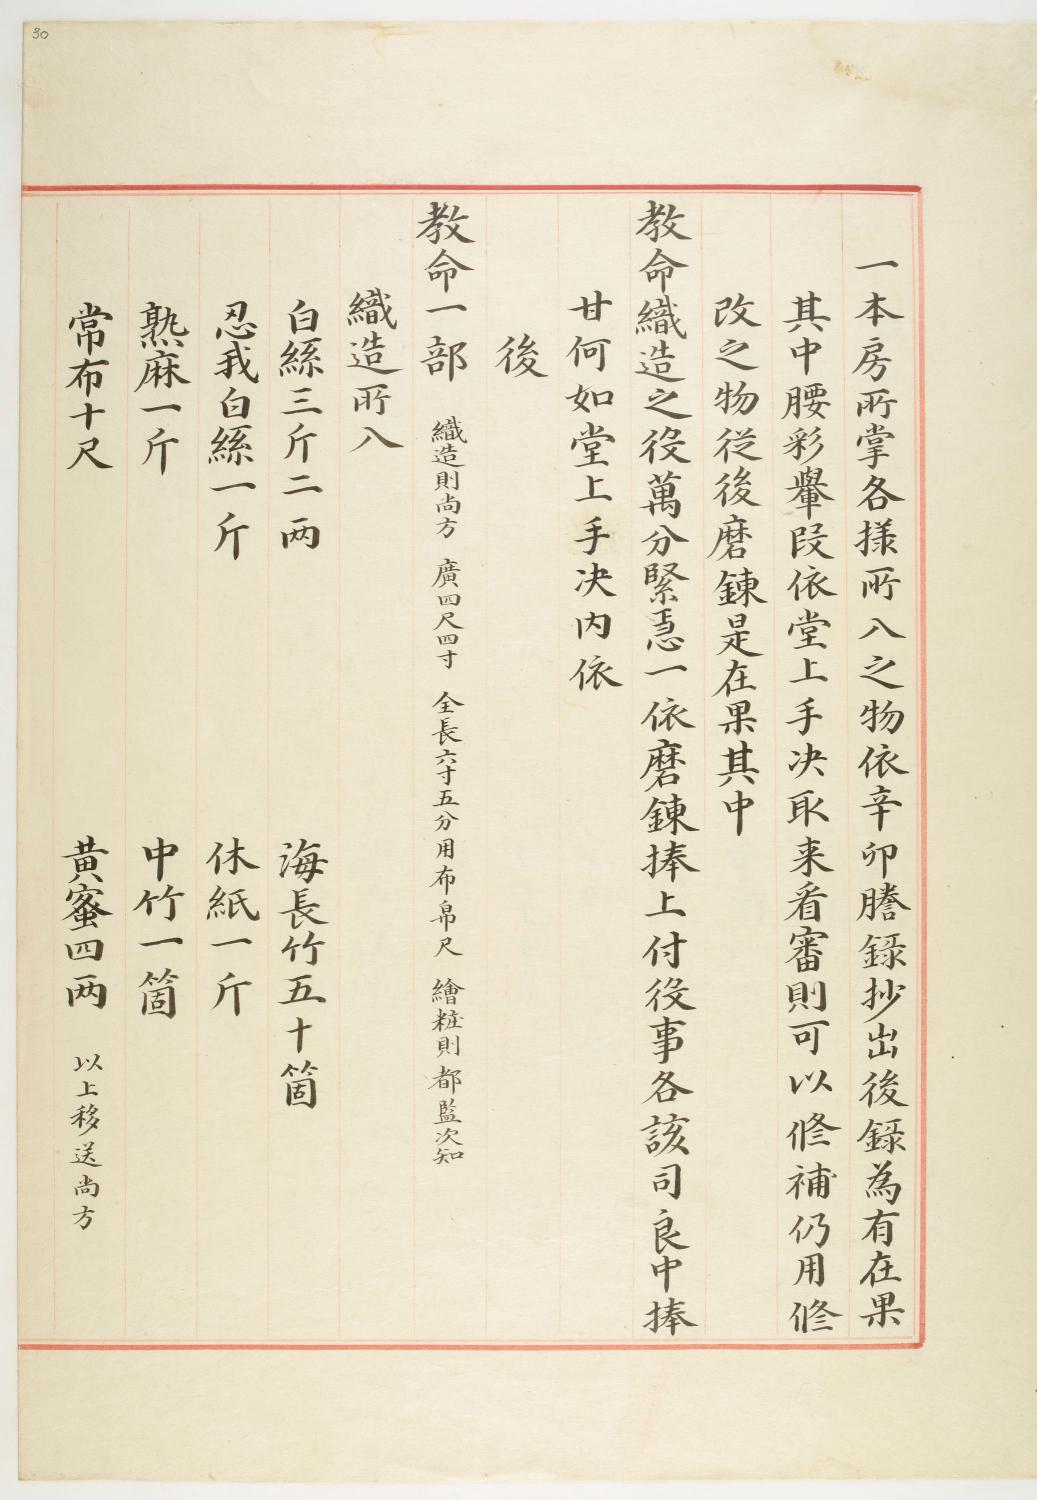 一本房所掌各樣所入之物依辛卯謄録抄出後録為有在果
其中腰彩轝段依堂上手决取来看審則可以修補仍用修
改之物從後磨鍊是在果其中
教命織造之役萬分緊急一依磨鍊捧上付役事各該司良中捧
甘何如堂上手决内依
後
教命一部 織造則尚方 廣四尺四寸 全長六寸五分用布帛尺 繪粧則都監次知
織造所入
白絲三斤二两 海長竹五十箇
忍我白絲一斤 休紙一斤
熟麻一斤 中竹一箇
常布十尺 黄蜜四两 以上移送尚方
30